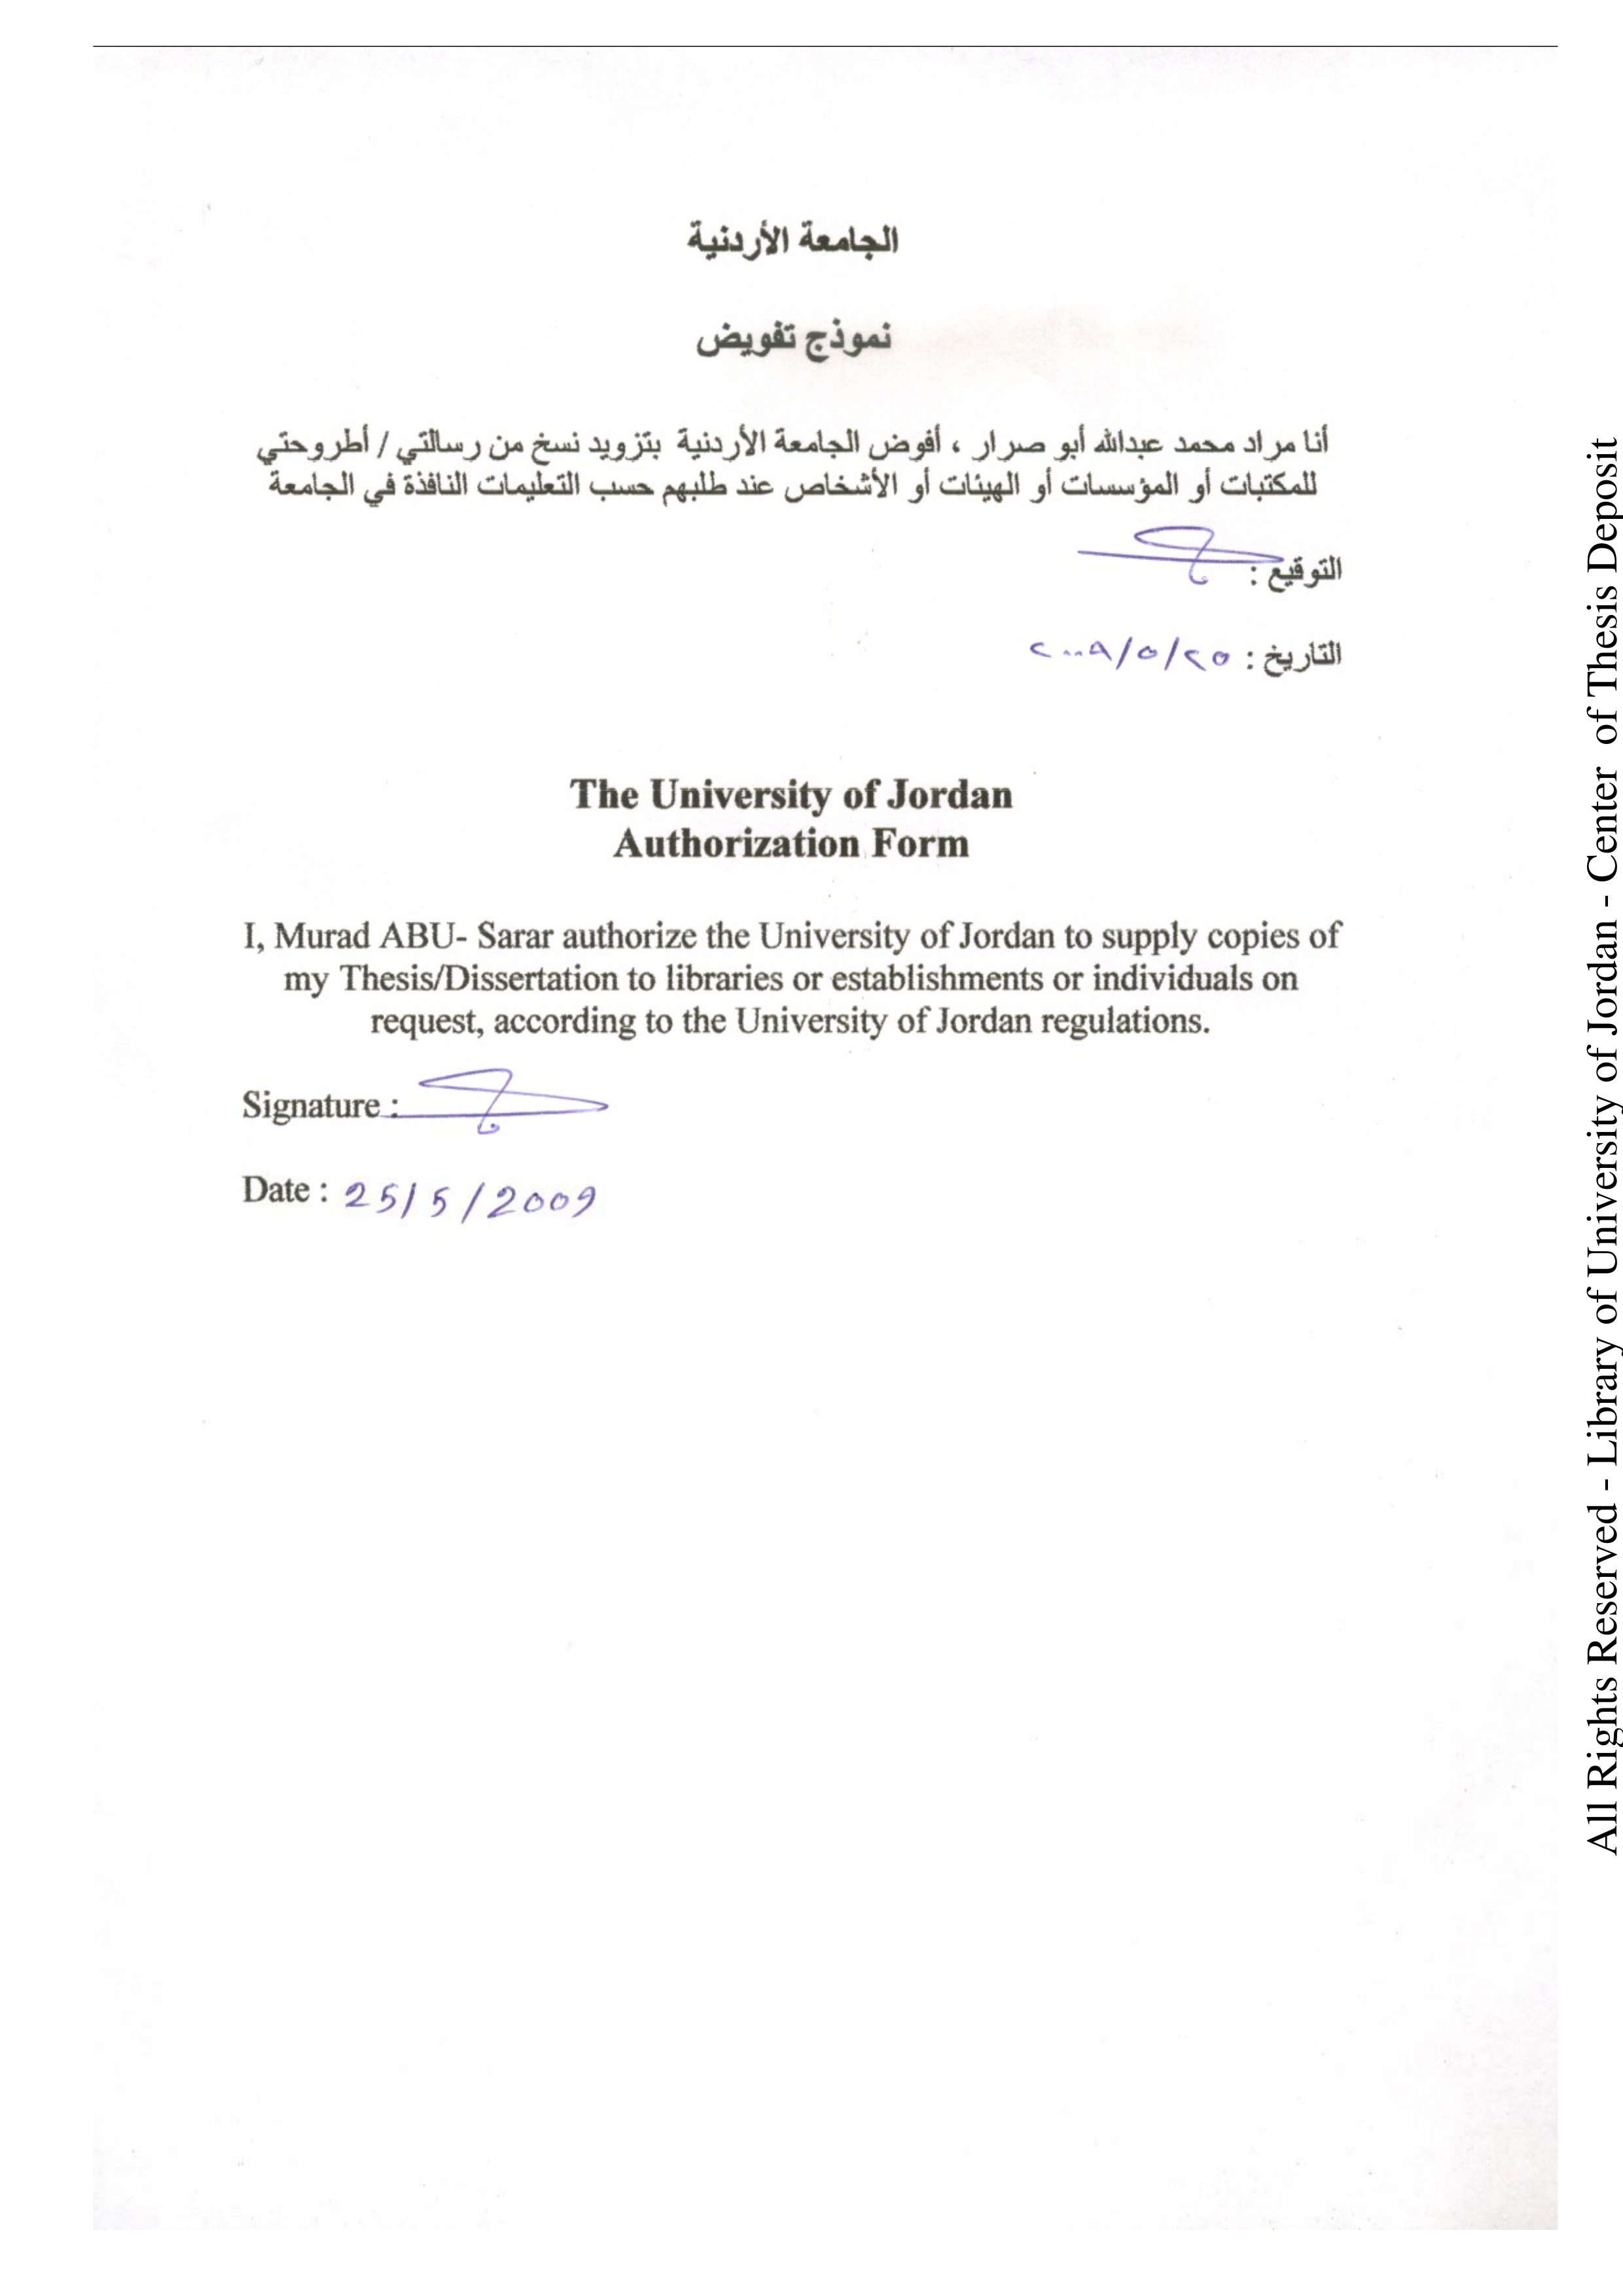 الجامعة الأردنية
نموذج تفويض
أنا مراد محمد عبدالله أبو صرار ، أفوض الجامعة الأردنية بتزويد نسخ من رسالتي / أطروحتي
للمكتبات أو المؤسسات أو الهيئات أو الأشخاص عند طلبهم حسب التعليمات النافذة في الجامعة
التوقيع :
التاريخ : ٢٠٠٩/٥/٢٥
The University of Jordan
Authorization Form
I, Murad ABU- Sarar authorize the University of Jordan to supply copies of
my Thesis/Dissertation to libraries or establishments or individuals on
request, according to the University of Jordan regulations.
Signature :
Date : 25/5/2009
All Rights Reserved - Library of University of Jordan - Center of Thesis Deposit